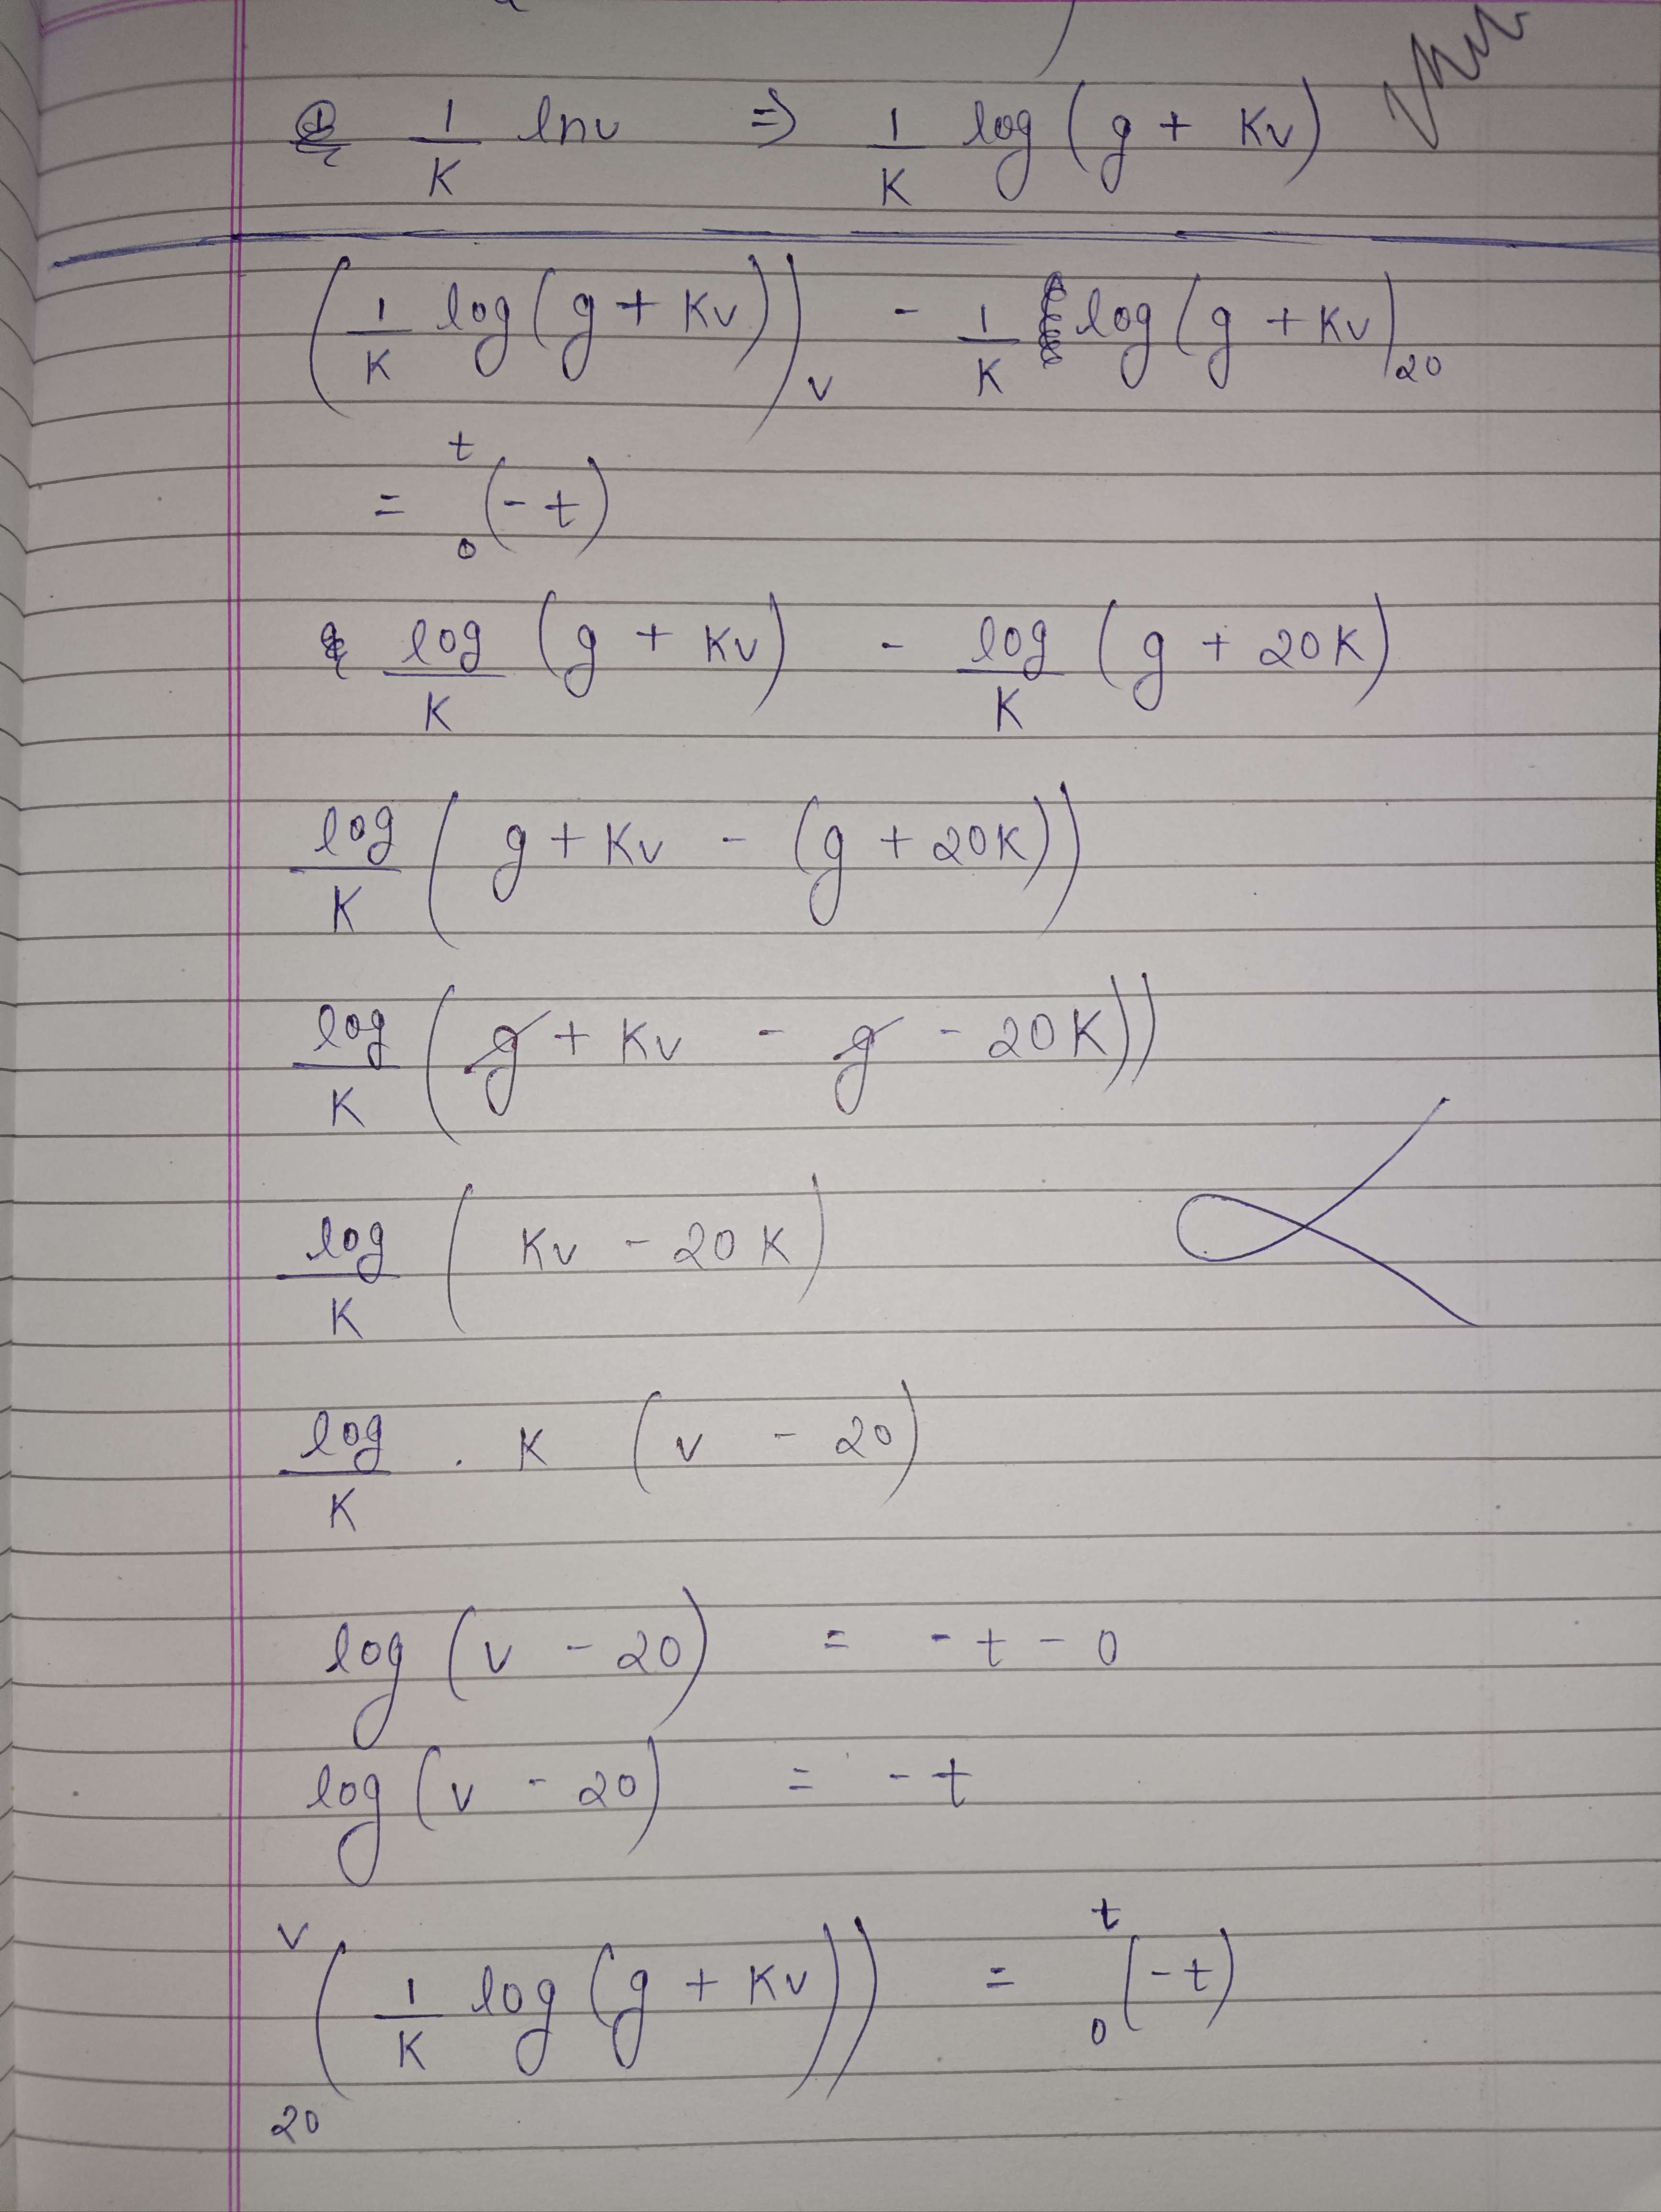 1/K lnu ⇒ 1/K log(g + Kv)
(1/K log(g + Kv))v - 1/K log(g + Kv)20
= t0(-t)
log/K (g + Kv) - log/K (g + 20K)
log/K (g + Kv - (g + 20K))
log/K (g + Kv - g - 20K))
log/K (Kv - 20K)
log/K . K (v - 20)
log(v - 20) = -t - 0
log(v - 20) = -t
v20(1/K log(g + Kv)) = t0(-t)